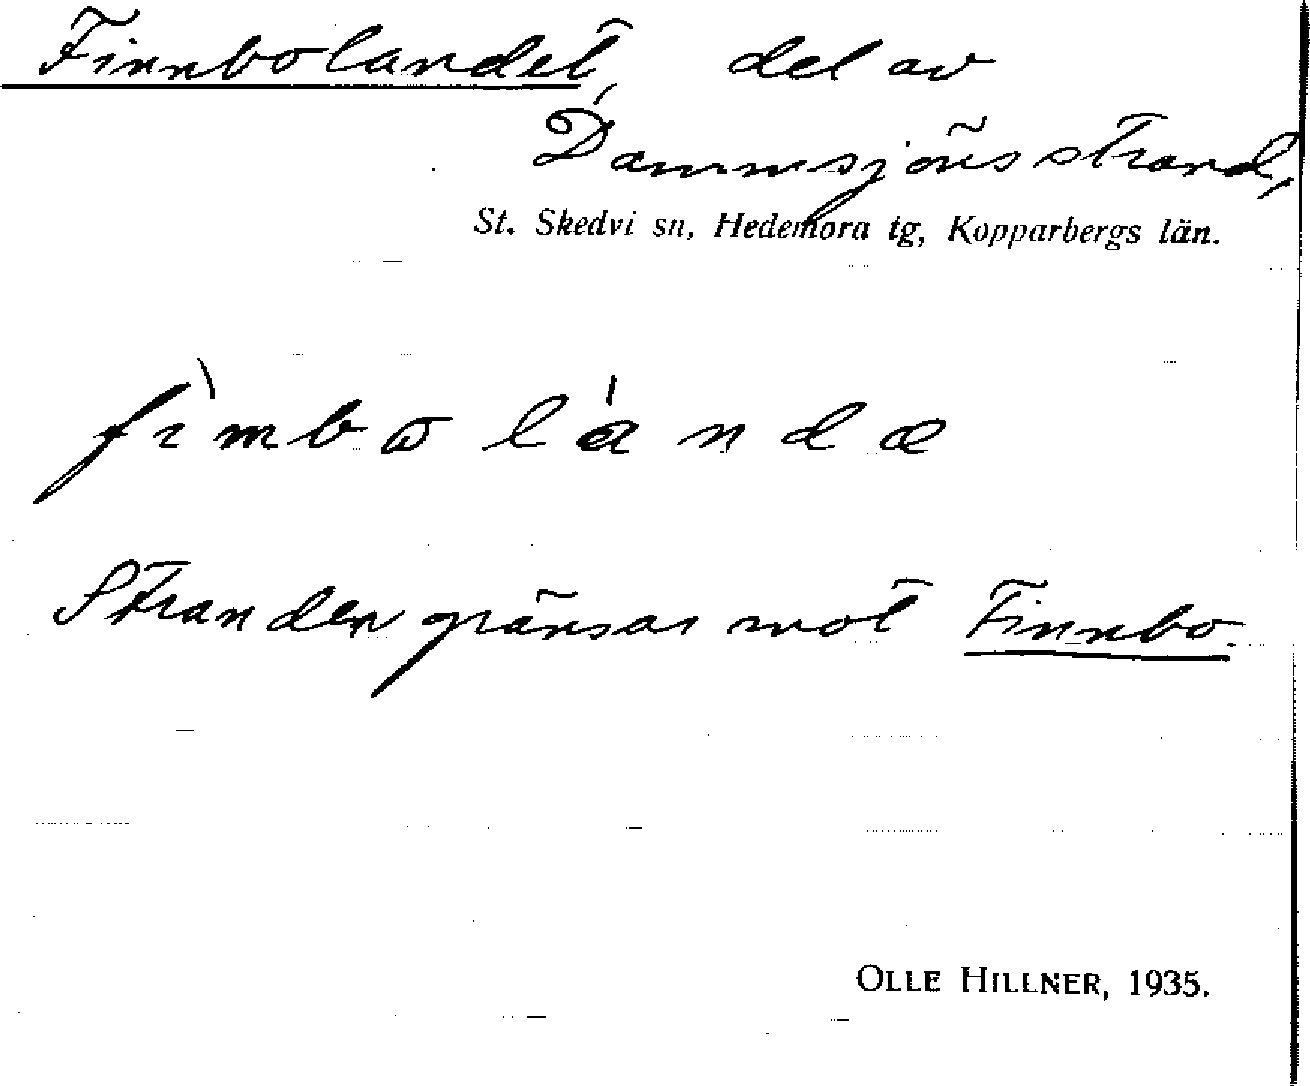 Finnbolandet, del av
Dammsjöns strand,
St. Skedvi sn, Hedemora tg, Kopparbergs län.
fìmbω lándæ
Stranden gränsar mot Finnbo.
OLLE HILLNER, 1935.